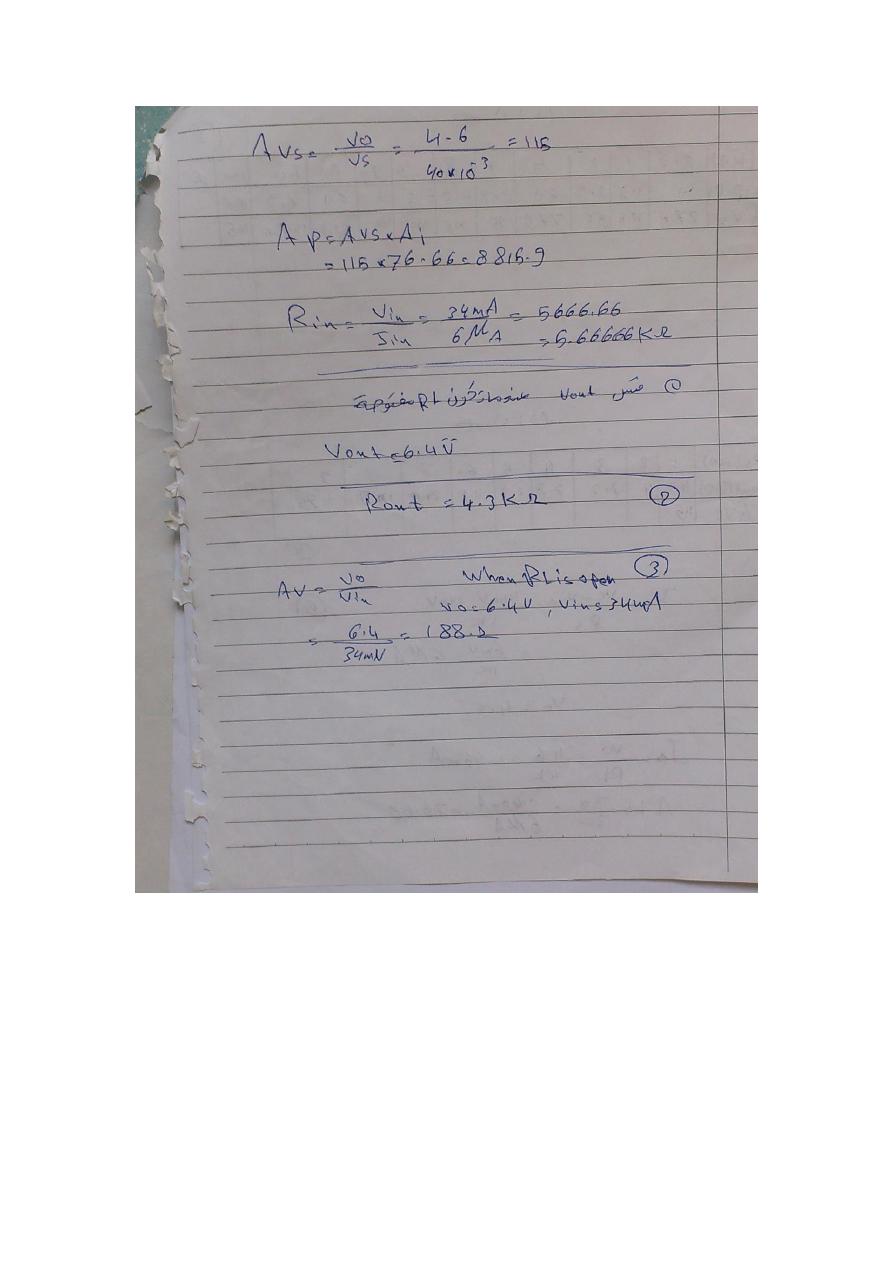 Avs = Vo/Vs = 4.6/40×10^-3 = 115
Ap = Avs × Ai
= 115 × 76.66 = 8815.9
Rin = Vin/Iin = 34mA/6MA = 5666.66
= 5.66666KΩ
① قس Vout عندما تكون RL مفتوحة
Vout = 6.4V
Rout = 4.3KΩ ②
AV = Vo/Vin When RL is open ③
Vo = 6.4V, Vin = 34mA
= 6.4/34mV = 188.2